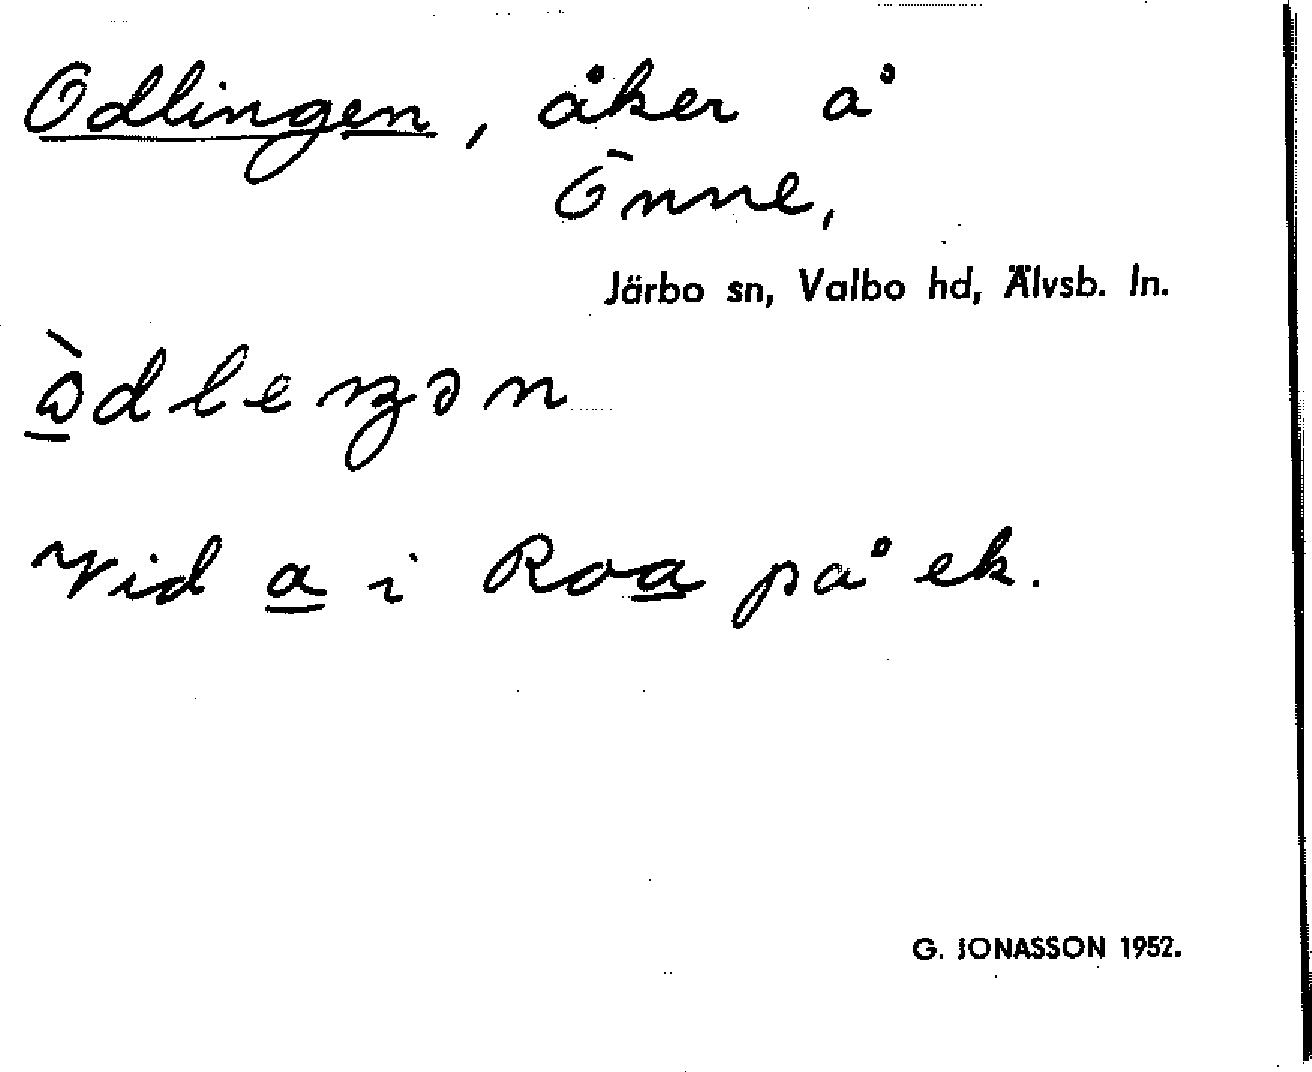 Odlingen, åker å
Önne,
Järbo sn, Valbo hd, Älvsb. ln.
Vid a i Roa på ek.
G. JONASSON 1952.